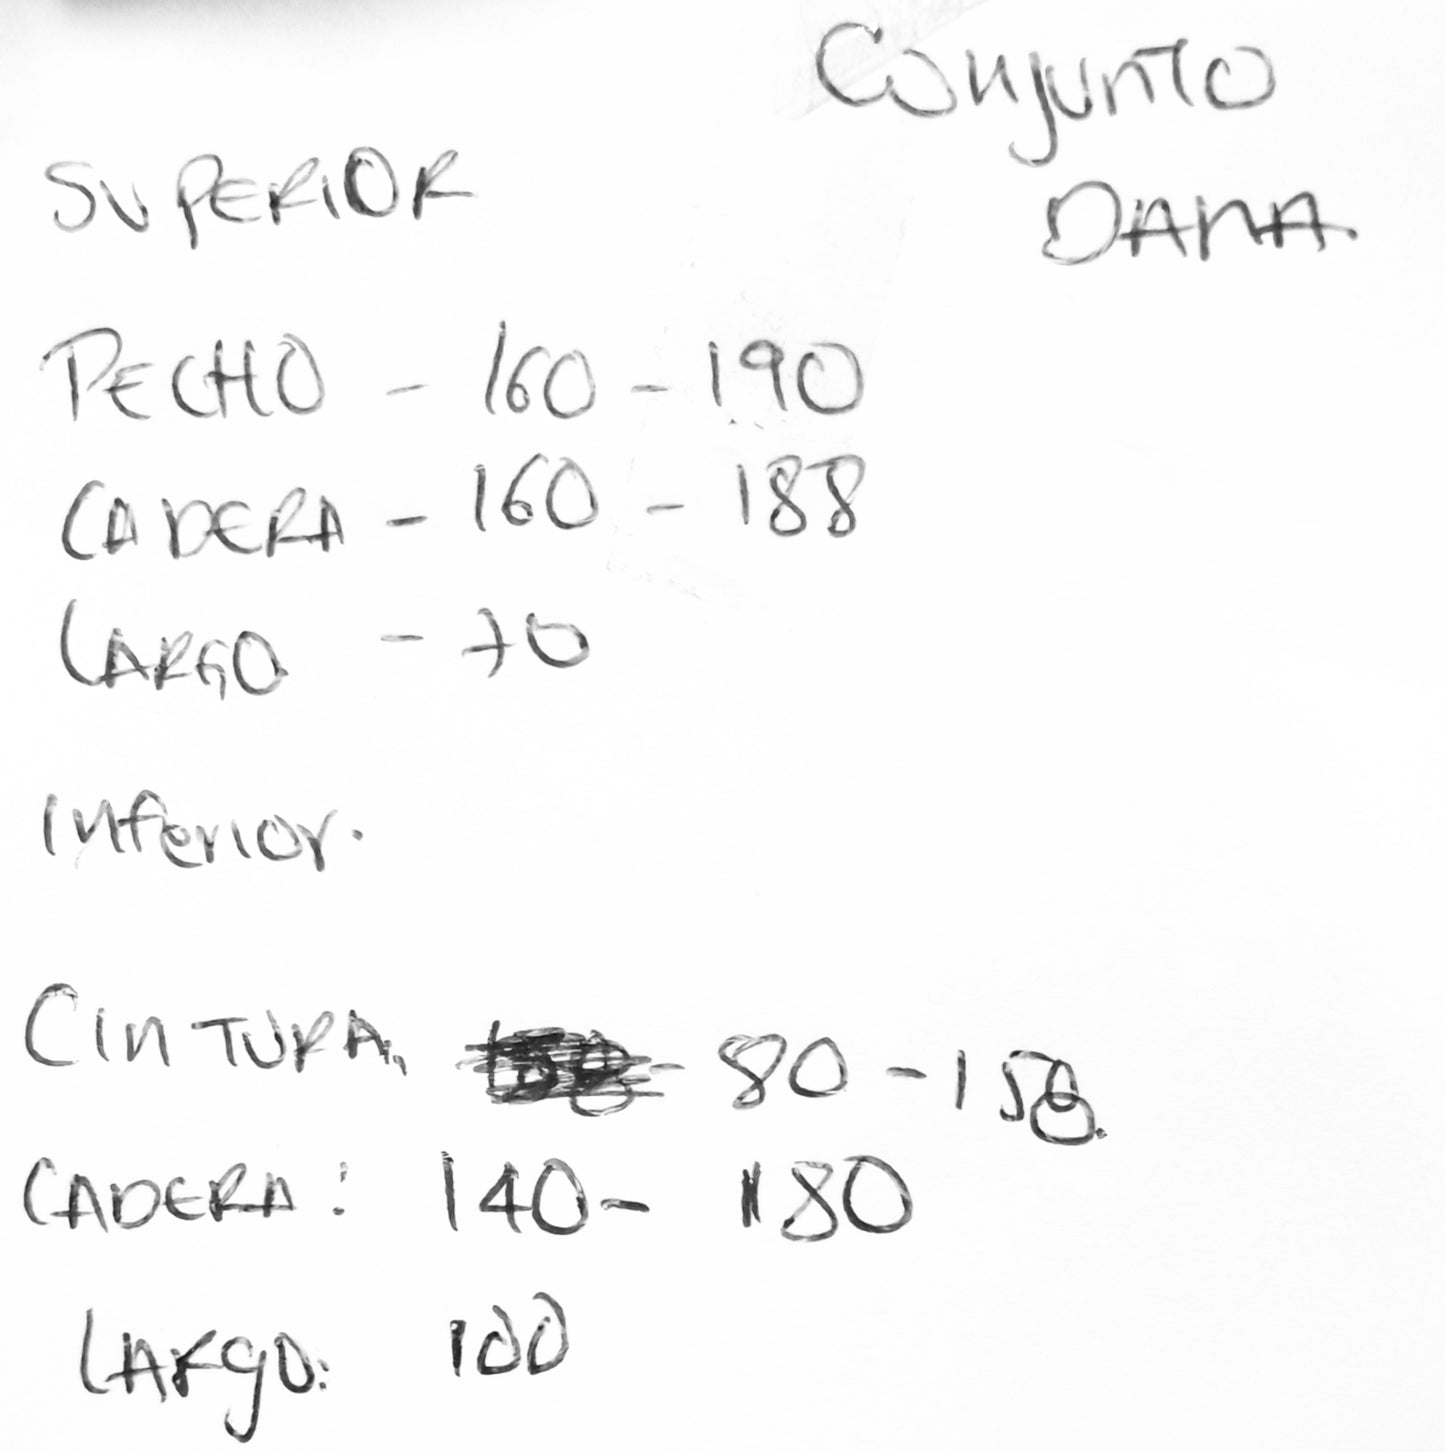 Conjunto
DANA.
SUPERIOR
PECHO - 160 - 190
CADERA - 160 - 188
LARGO - 70
Inferior.
CINTURA. 80 - 158.
CADERA: 140 - 180
LARGO: 100